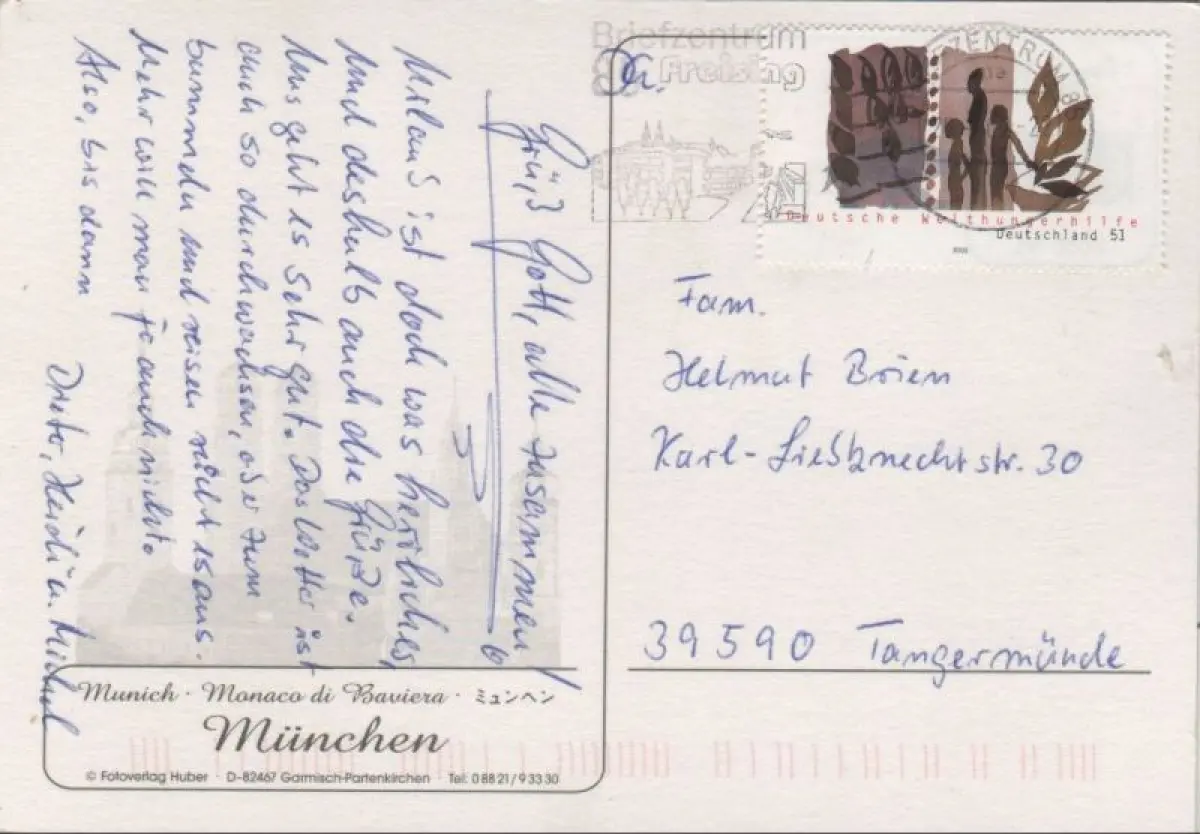 Grüß Gott, alle zusammen!
Urlaub ist doch was herrliches,
und deshalb auch die Grüße.
Uns geht es sehr gut. Das Wetter ist
auch so durchwachsen, aber zum
bummeln und reisen reicht es aus.
Mehr will man ja auch nicht.
Also, bis dann
Dieter, Heidi u. Michael
Munich · Monaco di Baviera · ミュンヘン
München
© Fotoverlag Huber · D-82467 Garmisch-Partenkirchen · Tel: 0 88 21 / 9 33 30
Briefzentrum
Freising
ZENTRUM 8
Deutsche Welthungerhilfe
Deutschland 51
Fam.
Helmut Brien
Karl-Liebknechtstr. 30
39590 Tangermünde